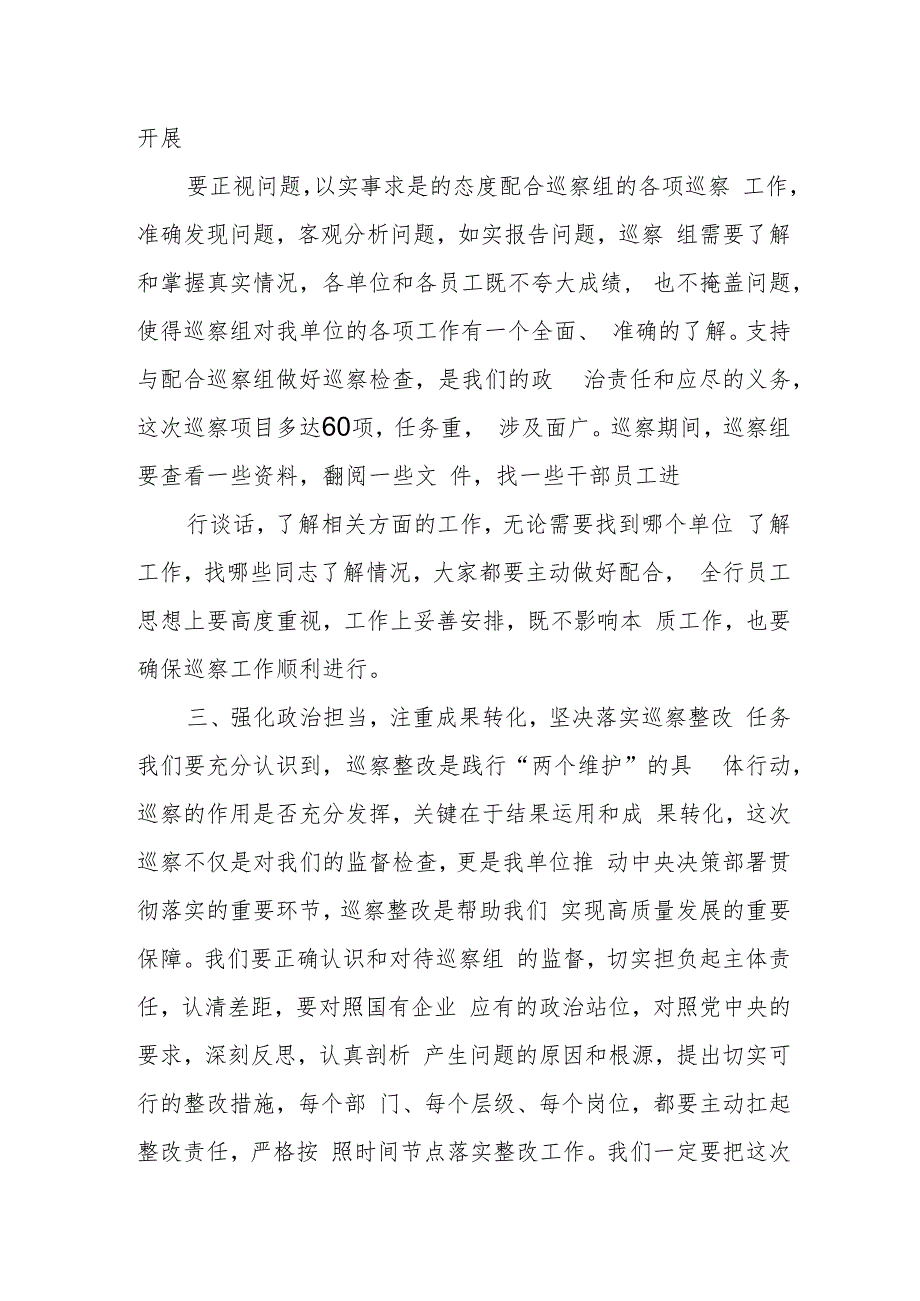 开展
要正视问题，以实事求是的态度配合巡察组的各项巡察 工作，
准确发现问题，客观分析问题，如实报告问题，巡察 组需要了解
和掌握真实情况，各单位和各员工既不夸大成绩， 也不掩盖问题，
使得巡察组对我单位的各项工作有一个全面、 准确的了解。支持
与配合巡察组做好巡察检查，是我们的政 治责任和应尽的义务，
这次巡察项目多达60项，任务重， 涉及面广。巡察期间，巡察组
要查看一些资料，翻阅一些文 件，找一些干部员工进
行谈话，了解相关方面的工作，无论需要找到哪个单位 了解
工作，找哪些同志了解情况，大家都要主动做好配合， 全行员工
思想上要高度重视，工作上妥善安排，既不影响本 质工作，也要
确保巡察工作顺利进行。
三、强化政治担当，注重成果转化，坚决落实巡察整改 任务
我们要充分认识到，巡察整改是践行“两个维护”的具 体行动，
巡察的作用是否充分发挥，关键在于结果运用和成 果转化，这次
巡察不仅是对我们的监督检查，更是我单位推 动中央决策部署贯
彻落实的重要环节，巡察整改是帮助我们 实现高质量发展的重要
保障。我们要正确认识和对待巡察组 的监督，切实担负起主体责
任，认清差距，要对照国有企业 应有的政治站位，对照党中央的
要求，深刻反思，认真剖析 产生问题的原因和根源，提出切实可
行的整改措施，每个部 门、每个层级、每个岗位，都要主动扛起
整改责任，严格按 照时间节点落实整改工作。我们一定要把这次